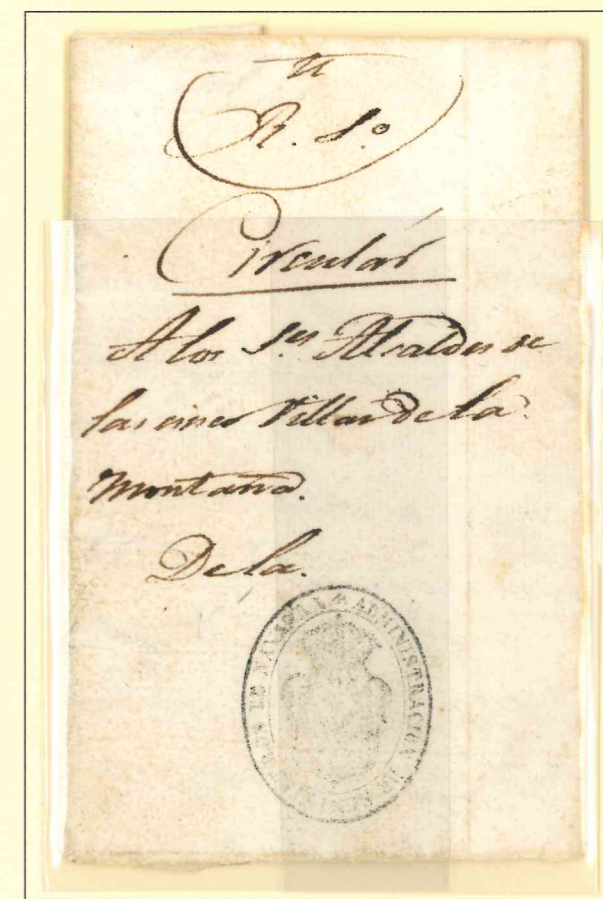 R. S.º
Circular
A los S.res Alcaldes de
las cinco Villas de la
Montaña.
De la.
DE NAVARRA * ADMINISTRACION